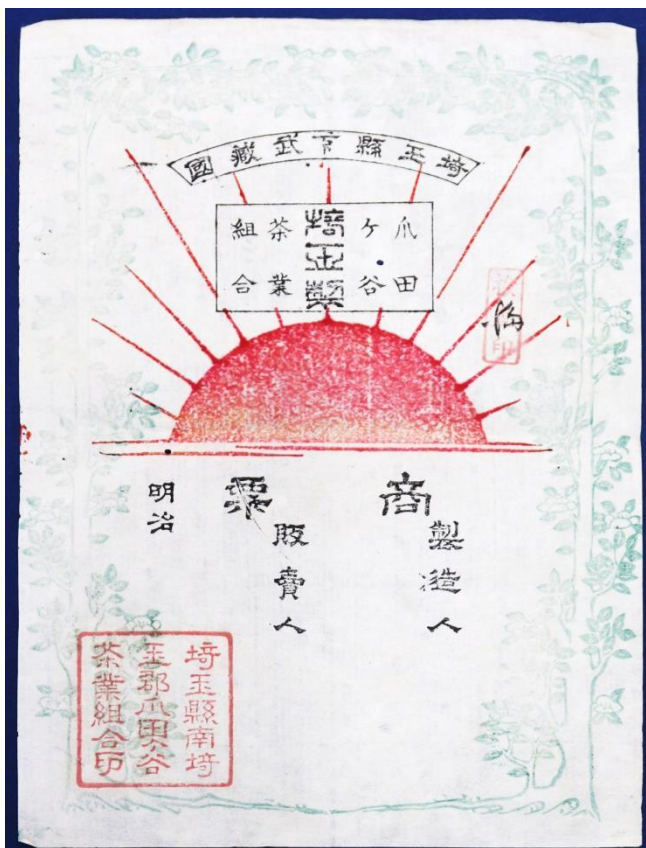 埼玉縣下武藏國
爪田
ケ谷
埼玉製
茶業
組合
商票
製造人
販賣人
明治
埼玉縣南埼
玉郡爪田ケ谷
茶業組合印